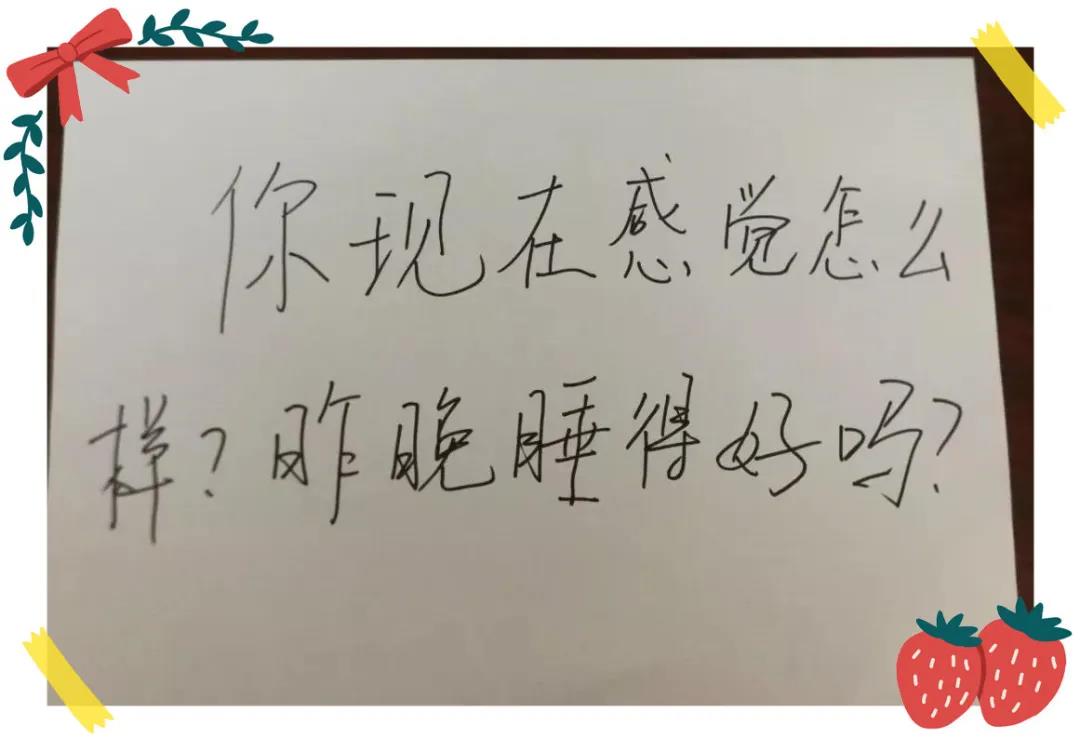 你现在感觉怎么
样?昨晚睡得好吗?